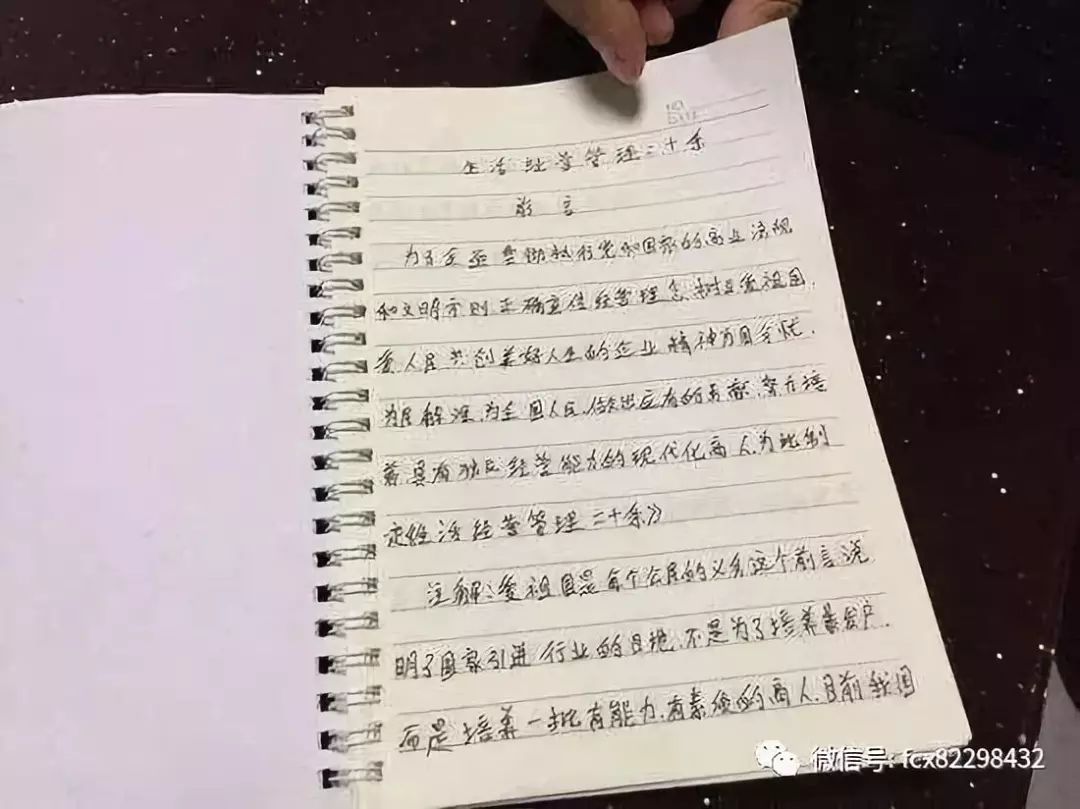 生活经营管理二十条
前言
为了全面贯彻执行党和国家的商业法规
和文明守则正确宣传经营管理 树立爱祖国.
爱人民共创美好人生的企业精神为国分忧.
为民解 为全国人民做出应有的贡献, 培
养具有独立经营能力的现代化商人.为此制
定《生活经营管理二十条》
注解:爱祖国是每个公民的义务这个前言说
明了国家引进行业的目地.不是为了培养暴发户.
而是培养一批有能力.有素质的商人.目前我国
微信号: fcx82298432